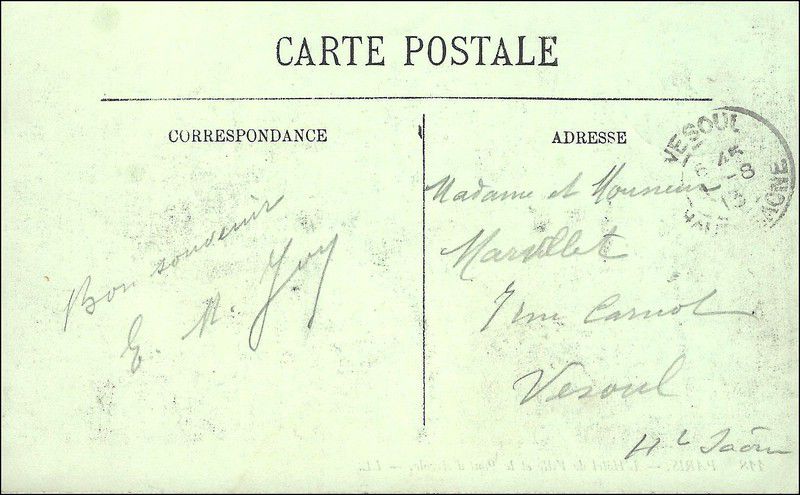 CARTE POSTALE
CORRESPONDANCE
Bon souvenir
E. M.
ADRESSE
VESOUL
Madame et Monsieur
7 rue Carnot
Vesoul
Hte Saône
118 PARIS. — L'Hôtel de Ville et le Pont d'Arcole. — LL.